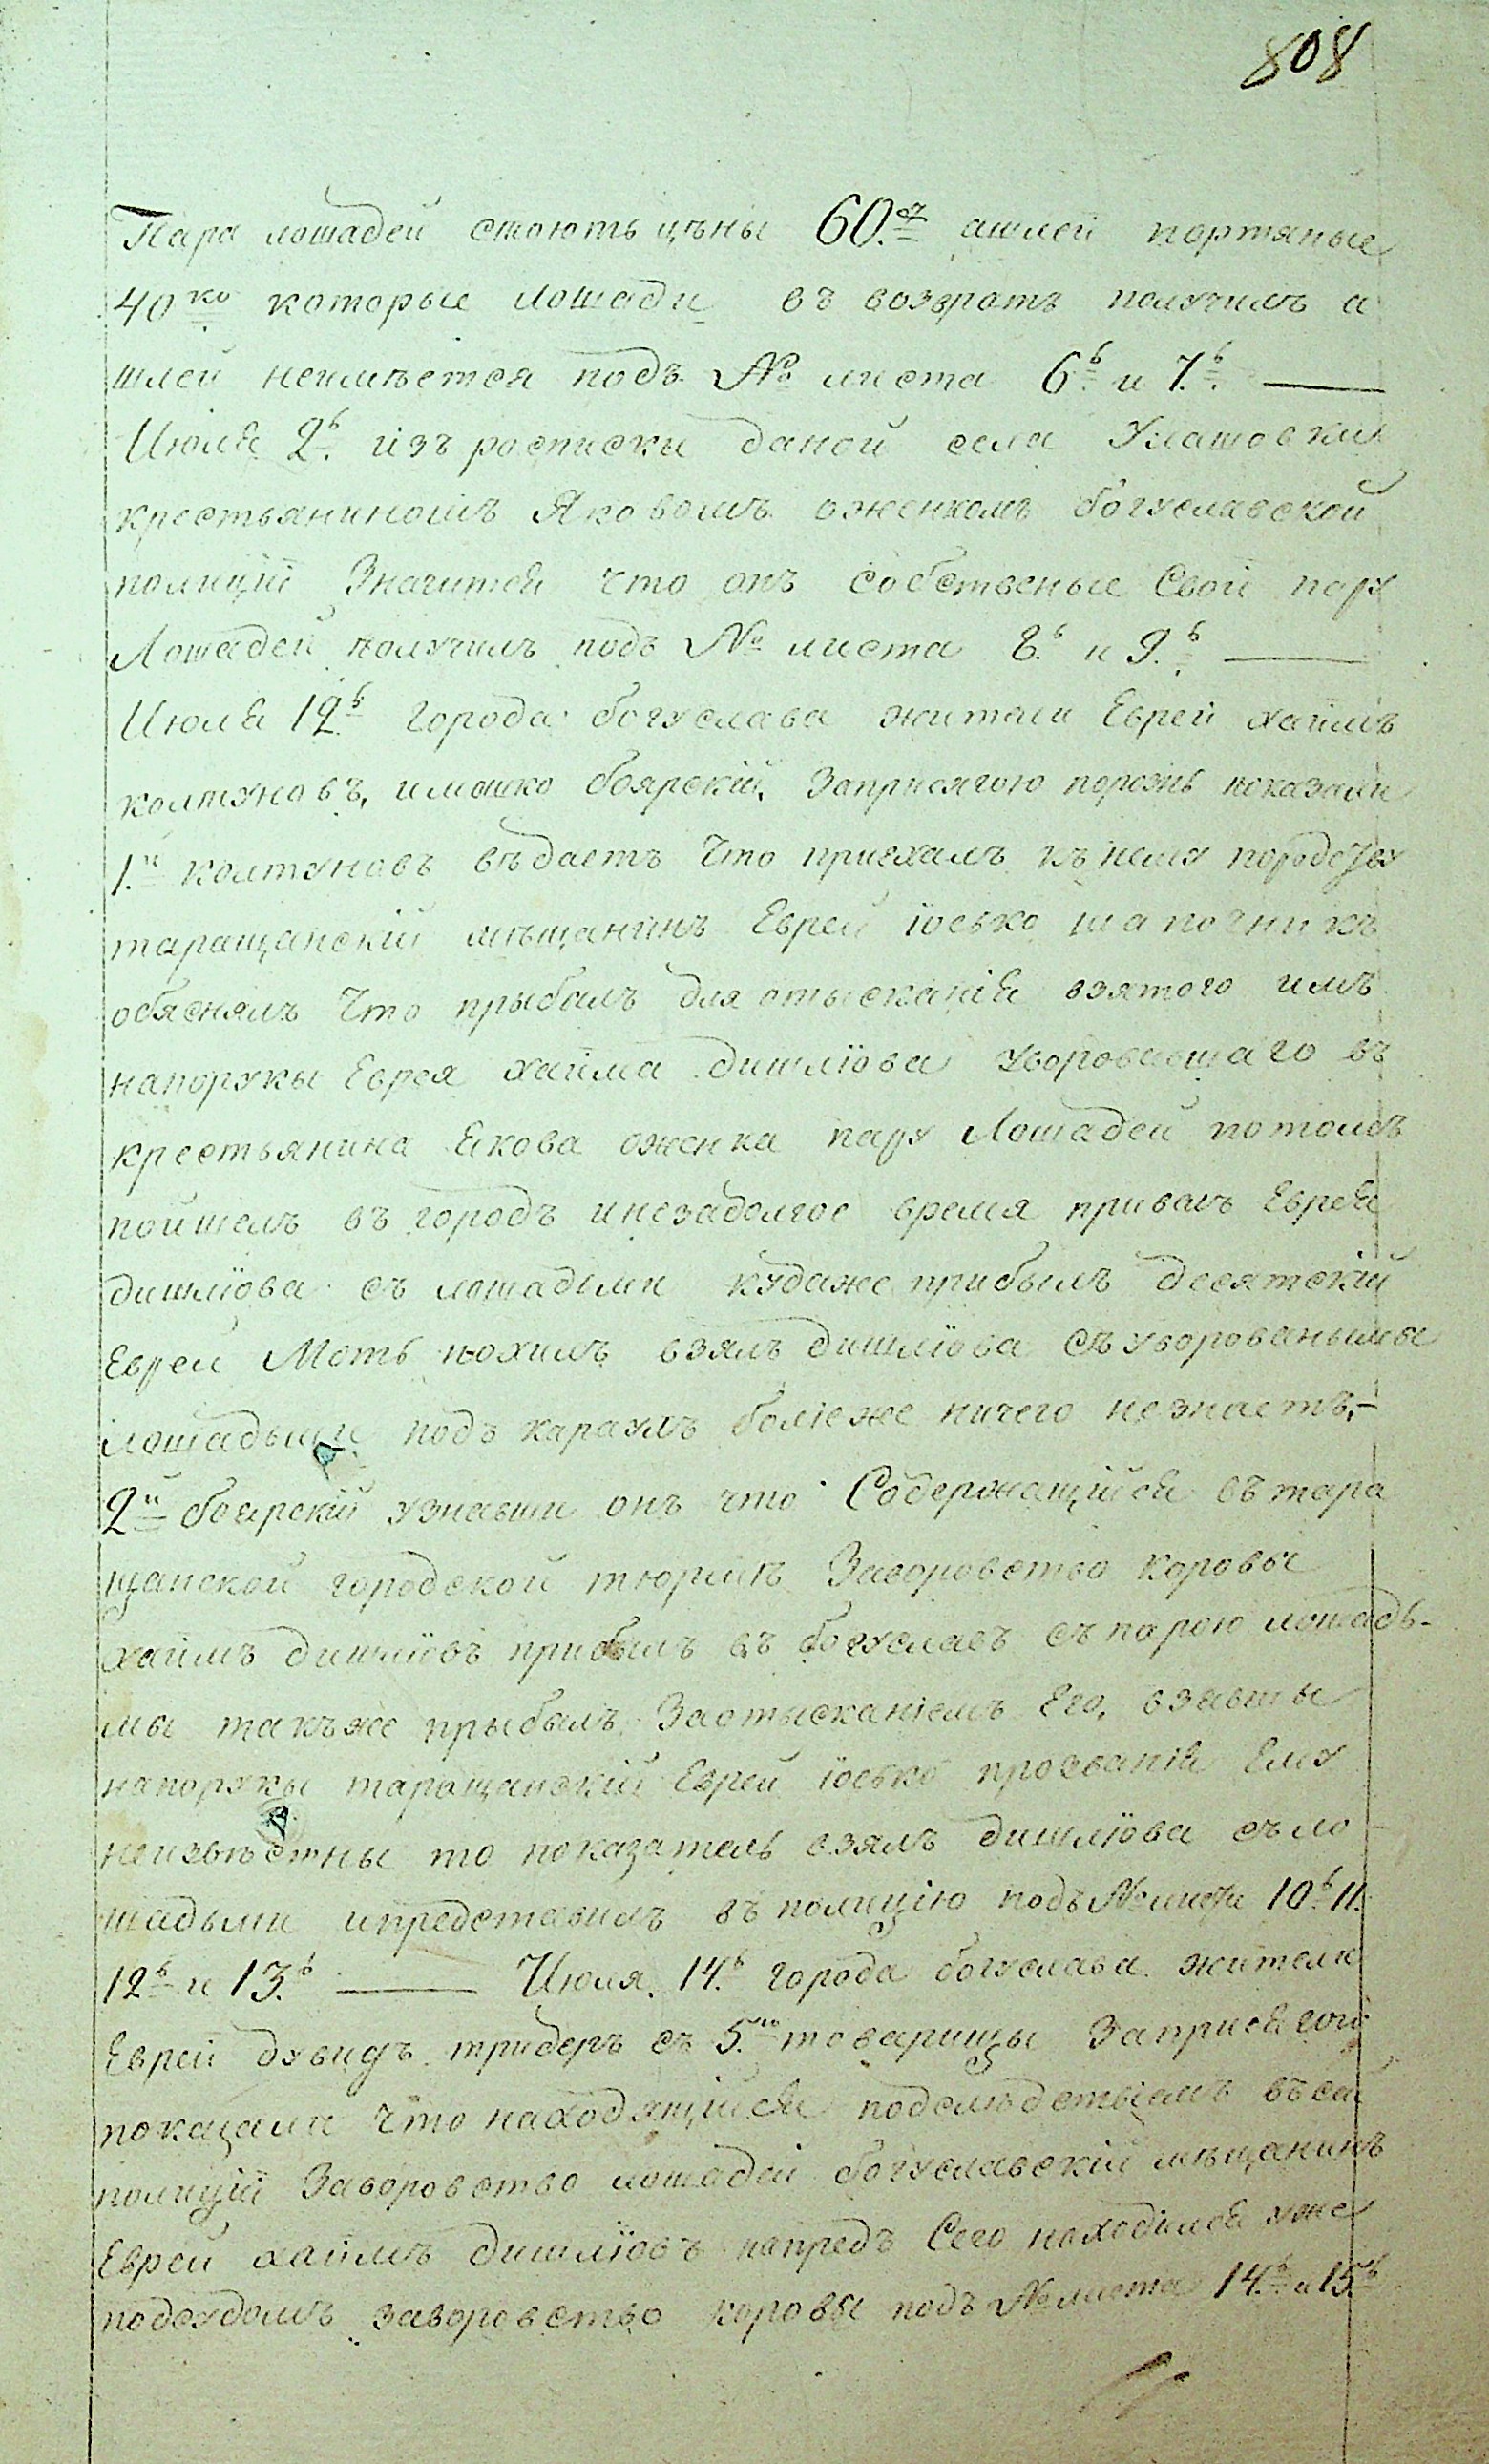 808
Пара лошадей стоютъ цѣны 60.ть ашлей портяные
40ко которые лошади въ возвратъ получилъ а
шлей неимѣется подъ № листа 6ъ и 7.ъ
Июля 2ъ. изъ росписки даной села
крестьяниномъ Яковомъ оженкомъ богуславской
полиціи Значится что онъ Собственые Свои пару
Лошадей получилъ подъ № листа 8.ъ и 9.ъ
Июля 12ъ города богуслава жители Евреи хаимъ
колтуновъ, имошко боярскій, Заприсягою порознь показали
1.й колтуновъ вѣдаетъ Что приехалъ къ нему
таращанскій мѣщанинъ Еврей іосько шапочникъ
обяснялъ Что прыбылъ для отысканія взятого имъ
напорукы Еврея хаима дишліова уворовавшаго въ
крестьянина Якова оженка пару Лошадей потомъ
пойшелъ въ городъ инезадолгое время привелъ Еврея
дишліова съ лошадьми кудаже прибылъ десятскій
Еврей Моть нохимъ взялъ дишліова съ уворованымы
лошадьми подъ караулъ боліеже ничего незнаетъ,-
2й боярскій узнавши онъ что Содержащійся въ тара
щанской городской тюрмѣ Заворовство коровы
хаимъ дишліовъ прибылъ въ богуславъ съ парою лошадь-
мы такъже прыбылъ, Заотысканіемъ Его, взявшы
напорукы таращанскій Еврей іосько прозванія Ему
неизвѣстны то показатель взялъ дишліова съ ло-
шадьми ипредставилъ въ полицію подъ № листа 10ъ 11.
12ъ и 13.ъ Июля. 14.ъ города богуслава жители
Евреи дувидъ тридеръ съ 5.ю товарищы Заприсягою
показали Что находящійся подслѣдствіемъ въ сей
полиціи Заворовство лошадей богуславскій мѣщанинъ
Еврей хаимъ дишліовъ напредъ Сего находился уже
подсудомъ заворовство коровы подъ № листа 14.ъ и 15.ъ